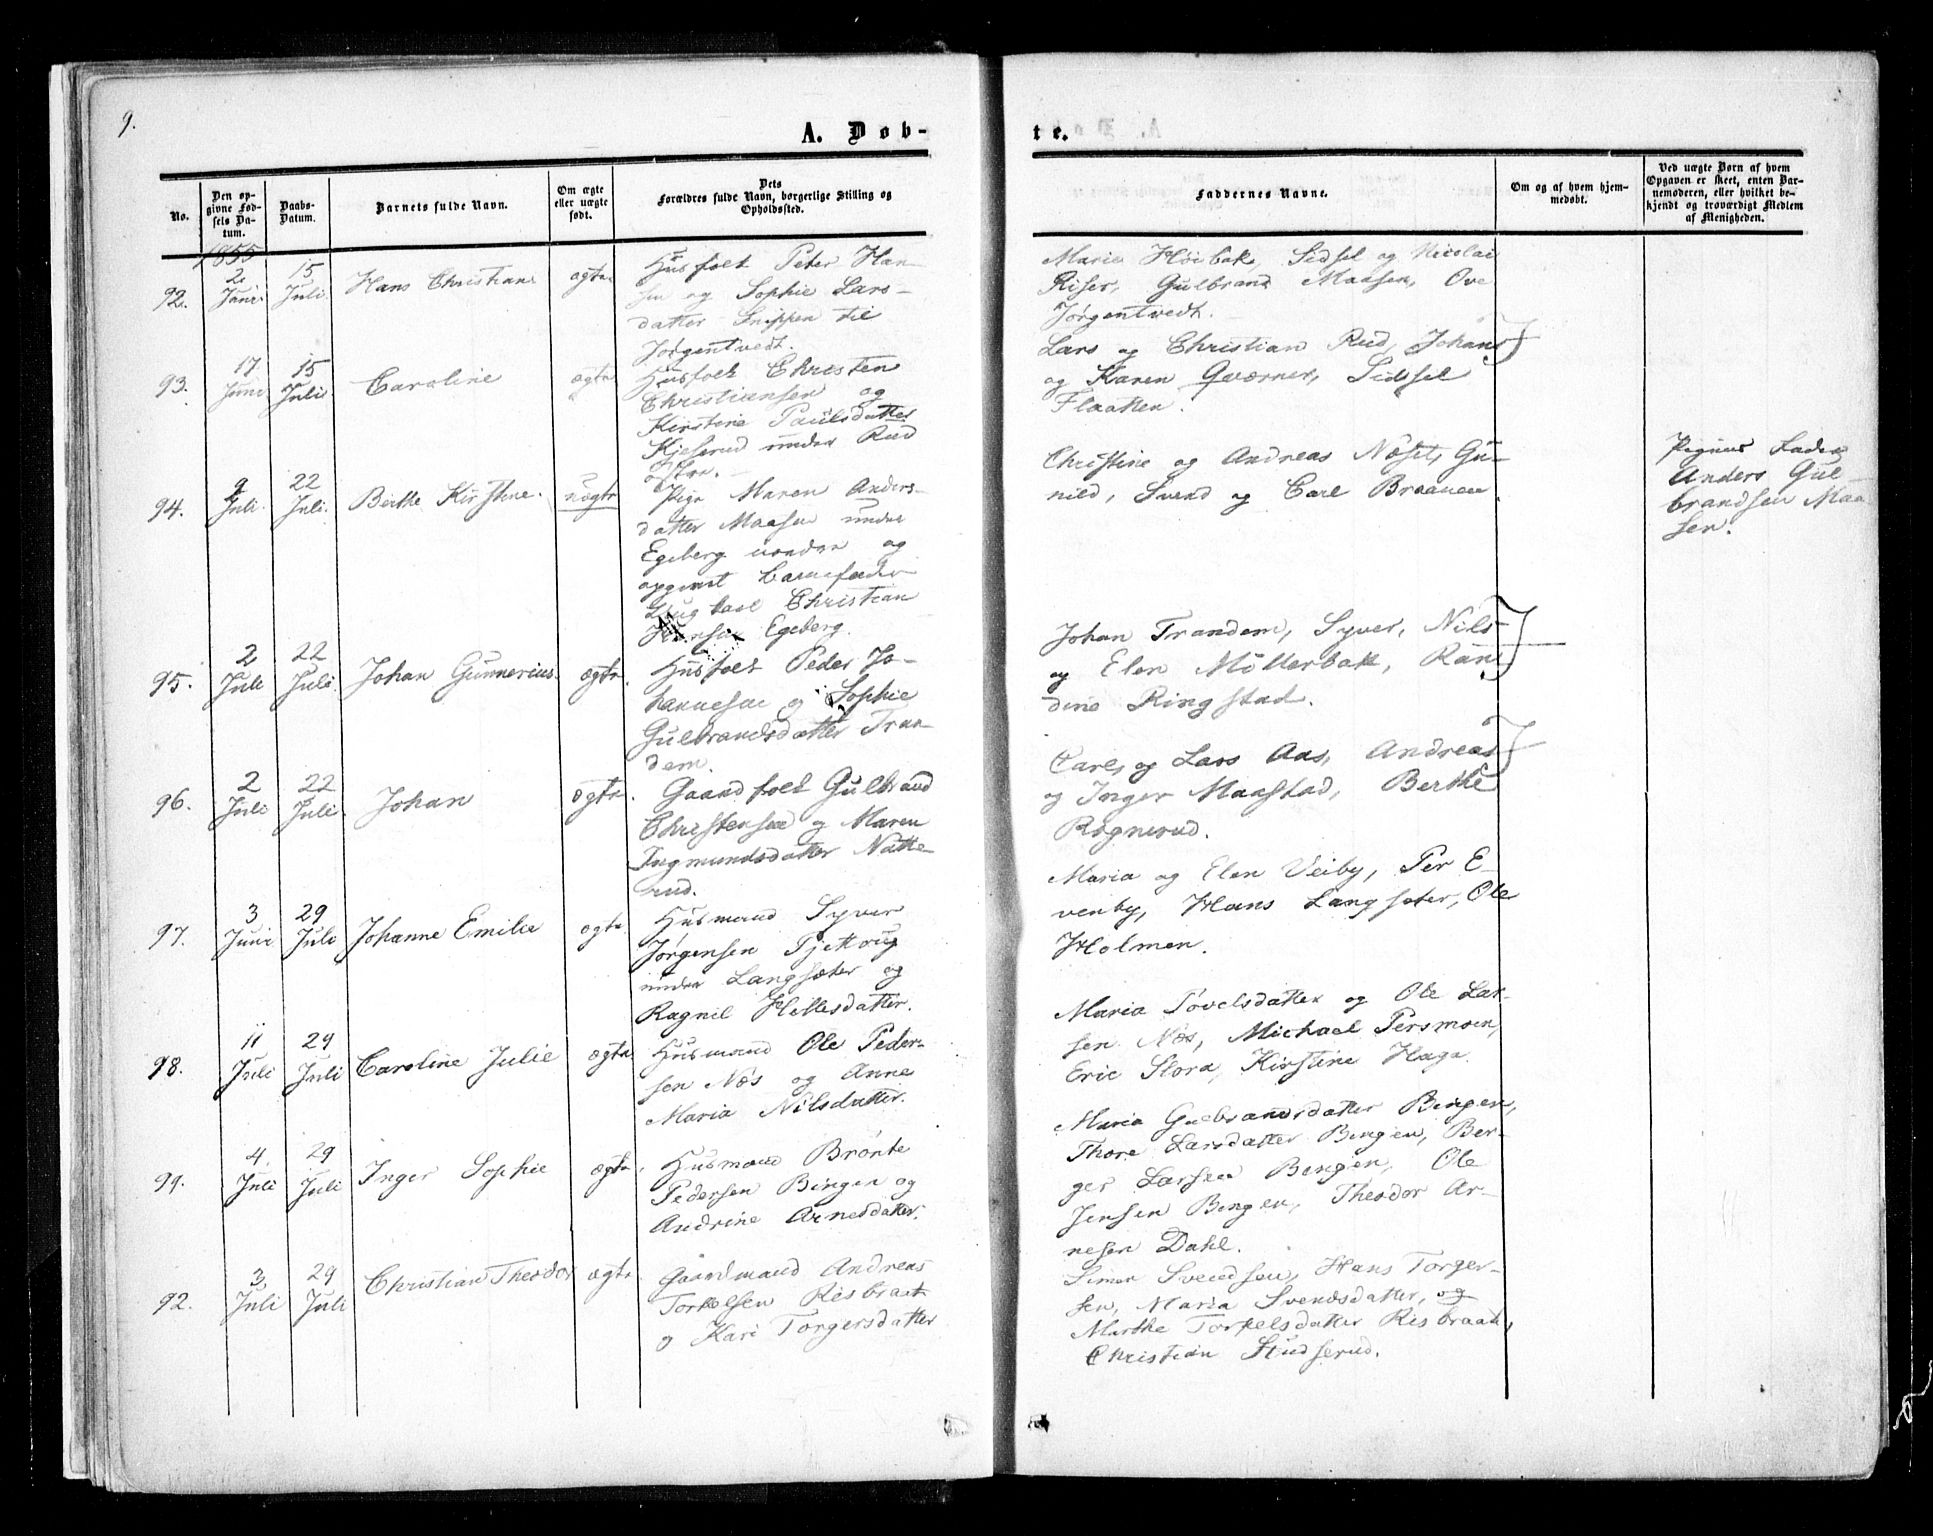 9.
A. Døb-
te.
No.
Den op-
givne Fød-
sels Da-
tum.
Daabs-
Datum.
Barnets fulde Navn.
Om ægte
eller uægte
født.
Dets
Forældres fulde Navn, borgerlige Stilling og
Opholdssted.
Faddernes Navne.
Om og af hvem hjem-
medøbt.
Ved uægte Børn af hvem
Opgaven er skeet, enten Bar-
nemoderen, eller hvilket be-
kjendt og troværdigt Medlem
af Menigheden.
1855
92.
2
Juni
15
Juli
Hans Christian
ægte
Husfolk Peter Han-
sen og Sophie Lars-
datter Snippen til
Jørgentvedt.
Marie Høibak, Sidsel og Nicolai
Riser, Gulbrand Maasen, Ove
Jørgentvedt.
93.
17
Juni
15
Juli
Caroline
ægte
Husfolk Christen
Christiansen og
Kirstine Paulsdatter
Kjeserud under Rud
Lars og Christian Rud, Johans
og Karen Qværner, Sidsel
Flaatten.
94.
9
Juli
22
Juli
Berthe Kirstine.
uægte
Pige Maren Anders-
datter Maasen under
Egeberg og
opgivet Barnefader
Christian
Hansen Egeberg.
Christine og Andreas Næset, Gu-
nild, Svend og Carl Braanen
Pigens Fader
Anders Gul
brandsen Maa
sen.
95.
2
Juli
22
Juli
Johan Gunnerius
ægte
Husfolk Peder Jo-
hannesen og Sophie
Gulbrandsdatter Tran
dem.
Johan Trandem, Syver, Nils
og Elen Møllerbak, Ran
dine Ringstad.
96.
2
Juli
22
Juli
Johan
ægte
Gaardfolk Gulbrand
Christensen og Maren
Ingmundsdatter Natte-
rud.
Carl, og Lars Aas, Andreas
og Inger Maastad, Berthe
Rognerud.
97.
3
Juni
29
Juli
Johanne Emilie
ægte
Husmand Syver
Jørgensen Tjettrup
under Langsæter og
Ragnil Hellesdatter.
Maria og Elen Veiby, Per E-
venby, Hans Langsæter, Ole
Holmen.
98.
11
Juli
29
Juli
Caroline Julie
ægte
Husmand Ole Peder-
sen Næs og Anne
Maria Nilsdatter.
Maria Tovelsdatter og Ole Lar-
sen Næs, Michael Persmoen,
Eric Slora, Kirstine Haga.
99.
4.
Juli
29
Juli
Inger Sophie
ægte
Husmand Brønte
Pedersen Bingen og
Andrine Arnesdatter.
Maria Gulbrandsdatter Bingen,
Thore Larsdatter Bingen, Ber-
ger Larsen Bingen, Ole
Jensen Bingen, Theodor Ar-
nesen Dahl.
92.
3
Juli
29
Juli
Christian Theodor
ægte
Gaardmand Andreas
Torkelsen Risbraat
og Kari Torgersdatter
Simen Svendsen, Hans Torger-
sen, Maria Svendsdatter, og
Marthe Torkelsdatter Risbraat,
Christian Studserud.